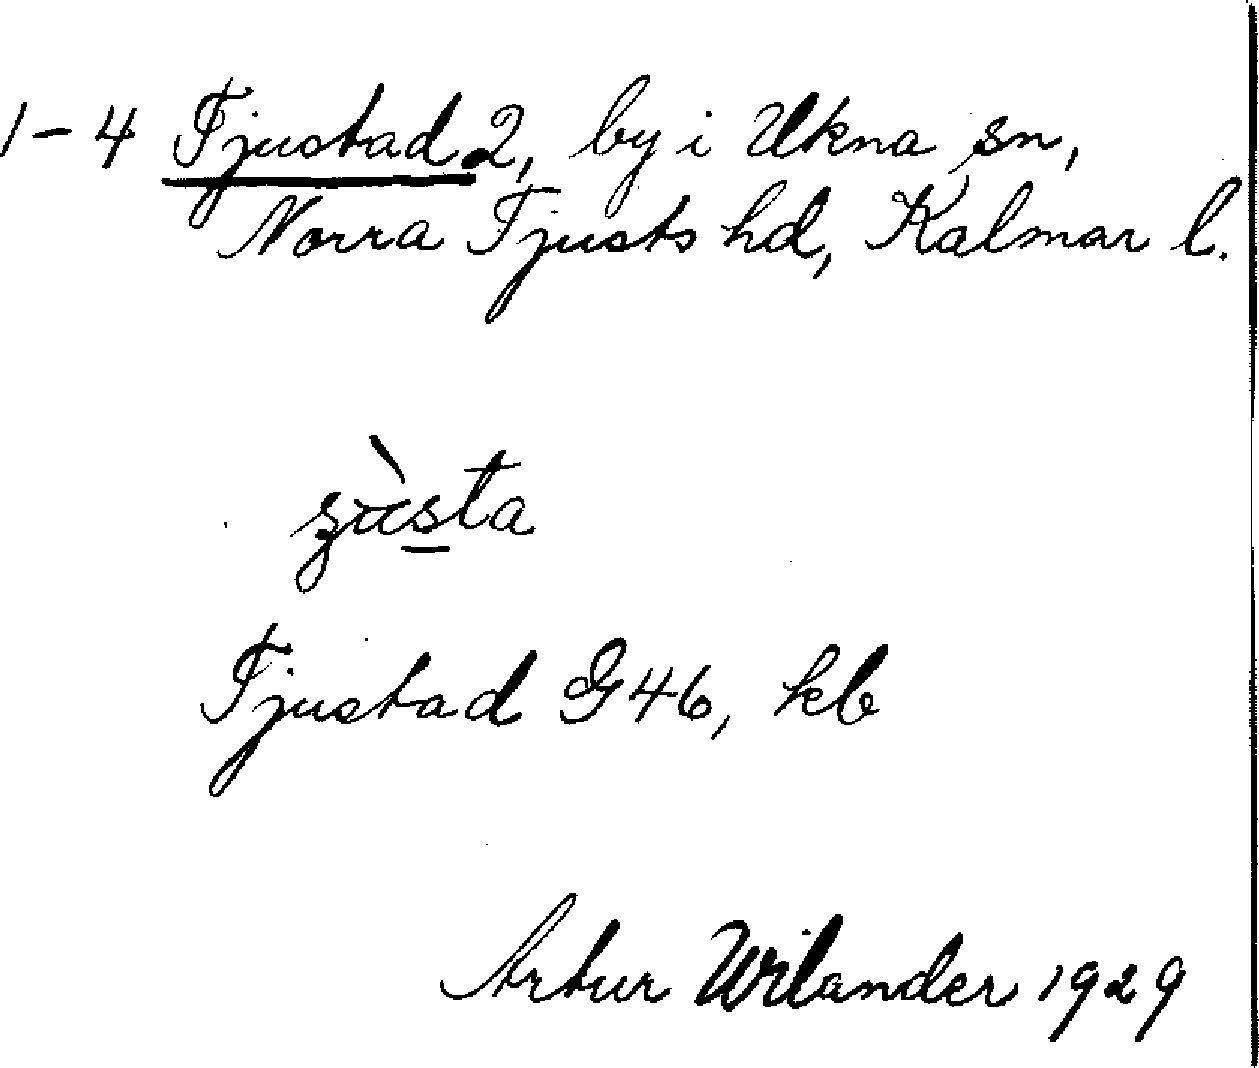 1-4 Tjustad 2, by i Ukna sn,
Norra Tjusts hd, Kalmar l.
Tjustad G 46, kb
Artur Wilander 1929